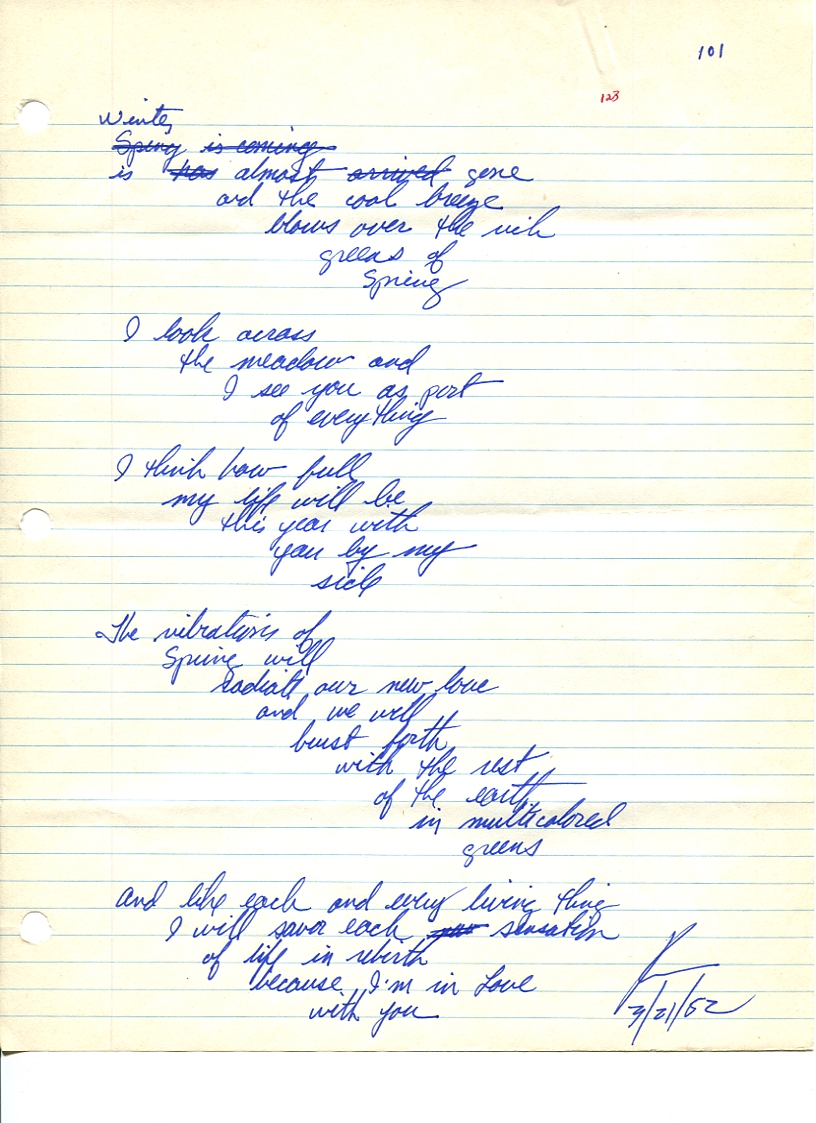 101
123
Winter
Spring is coming
is has almost arrived gone
and the cool breeze
blows over the rich
greens of
Spring
I look across
the meadow and
I see you as part
of everything
I think how full
my life will be
this year with
you by my
side
The vibrations of
Spring will
radiate our new love
and we will
burst forth
with the rest
of the earth
in multicolored
greens
And like each and every living thing
I will savor each sensation
of life in rebirth
because I'm in Love
with you